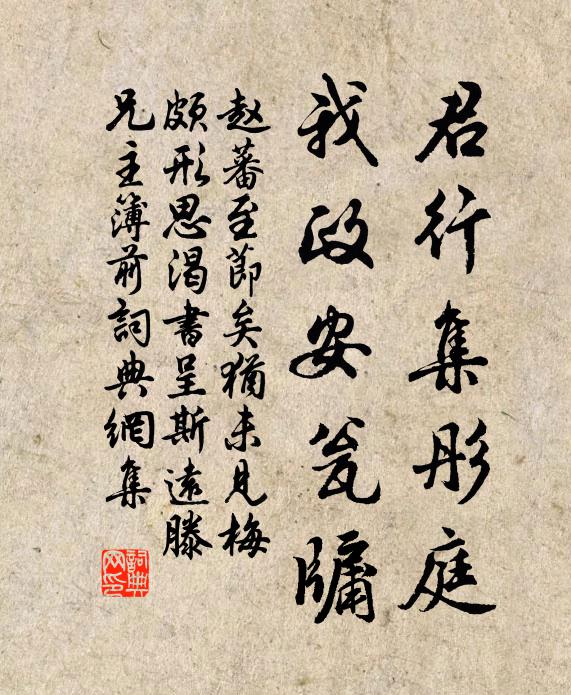 君行集彤庭
我政安瓮牖
赵蕃至節矣猶未見梅
頗形思渴書呈斯遠滕
兄主簿前詞典網集
詞典网印